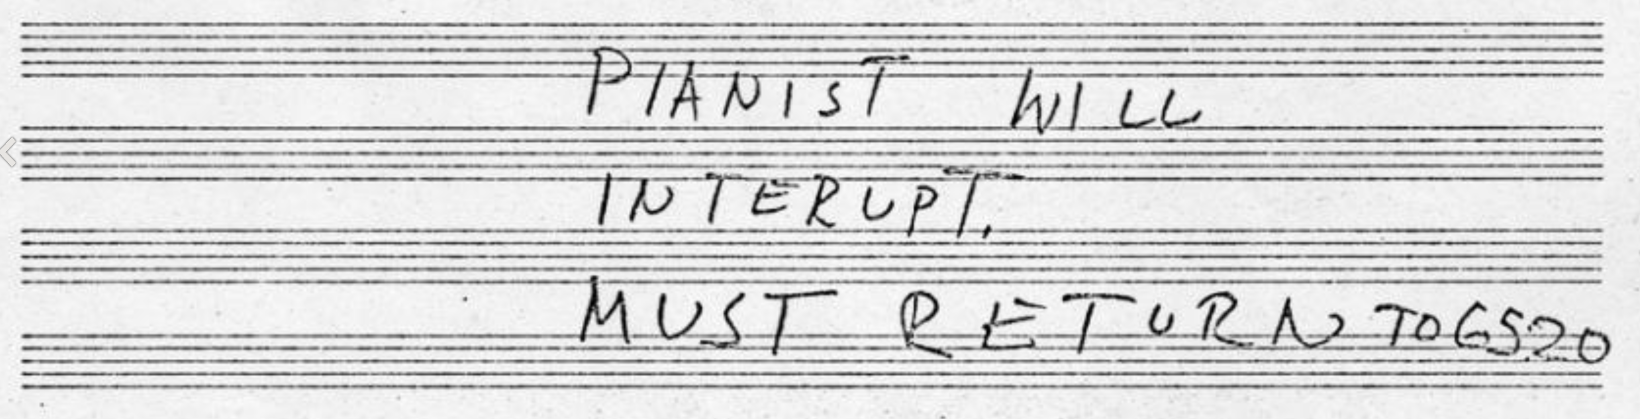 PIANIST WILL
INTERUPT.
MUST RETURN TO 6520